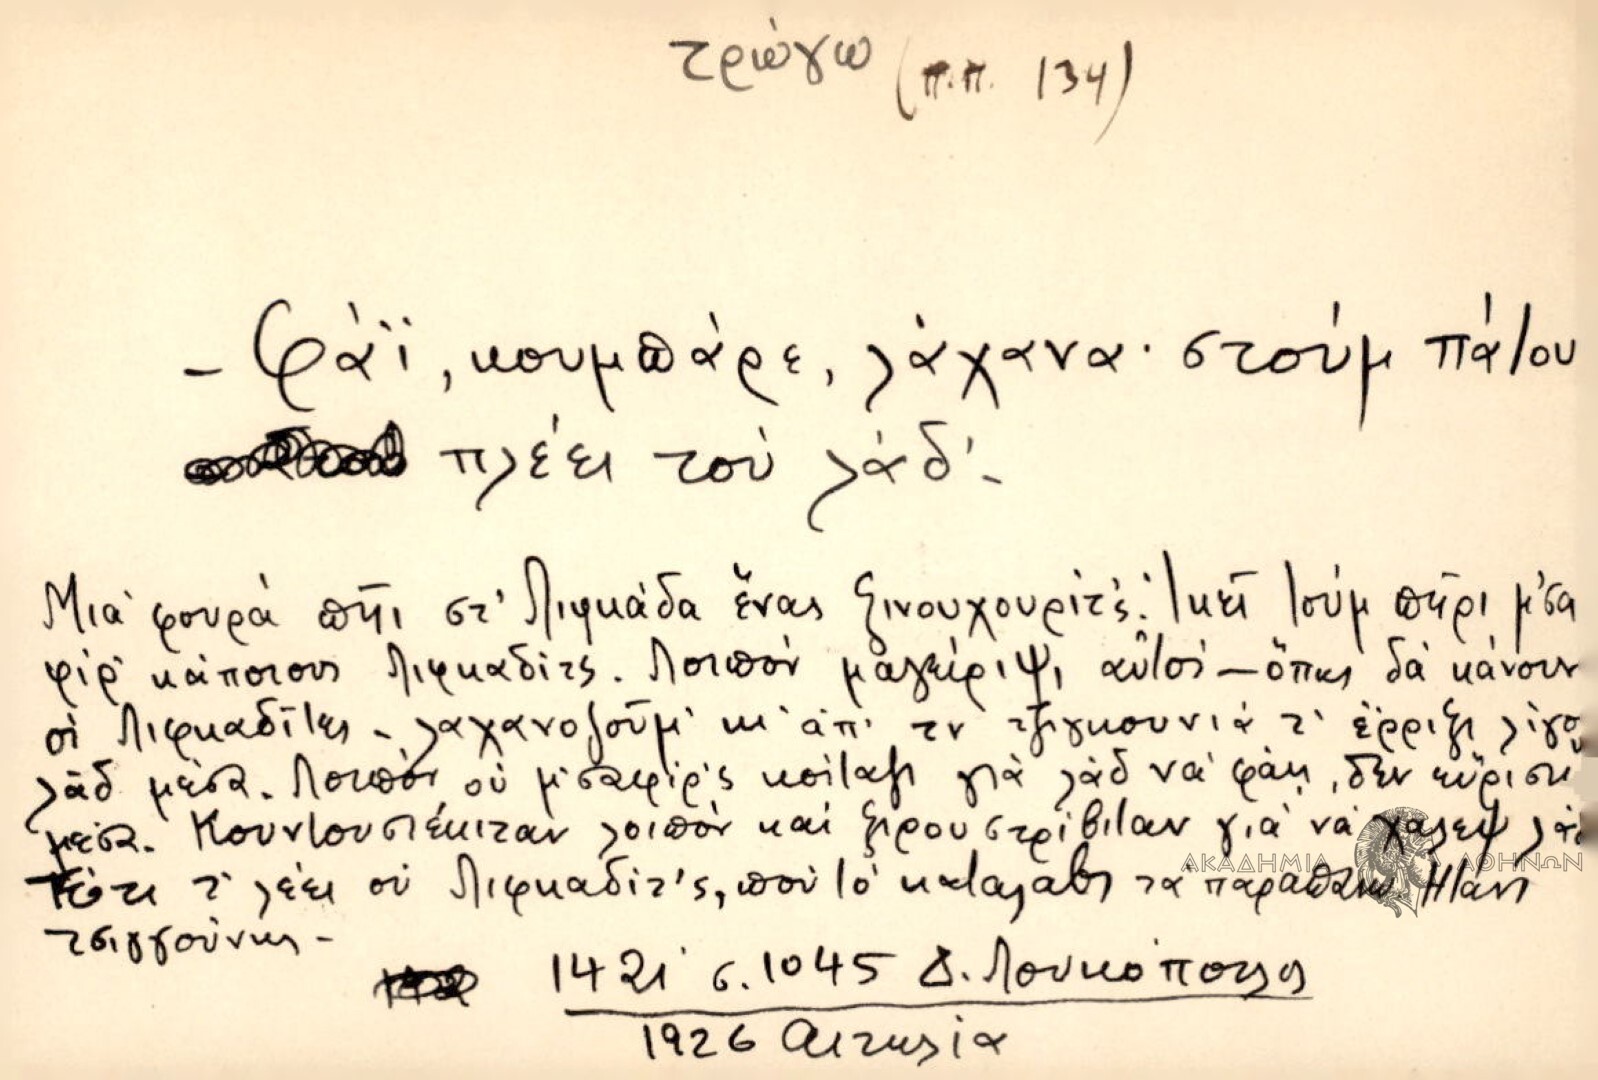 τρώγω (π.π. 134)
- Φάϊ, κουμπάρε, λάχανα· στούμ πάτου
πλέει τού λάδ'-
Μιά φουρά πῆγι στ' Λιφκάδα ἕνας ξινουχουρίτ'ς. Ικεῖ τούμ πῆρι μ'σα
φίρ' κάποιους Λιφκαδίτς. Λοιπόν μαγείριψι αὐτός - ὅπως δά κάνουν
οἱ Λιφκαδῖτες - λαχανοζούμ' κι ἀπ' τν τζιγκουνιά τ' ἔρριξι λίγο
λάδ μέσα. Λοιπόν οὑ μ'σαφίρ'ς κοίταζι γιά λάδ νά φάῃ, δέν εὕρισκι
μέσα. Κουντουστέκιταν λοιπόν καί ξιρουστρίβιταν γιά νά χαλεψ λάδ
Τότε τ' λέει οὑ Λιφκαδίτ'ς, πού τό κατάλαβι τά παραπάνω Ητάνι
τσιγγούνης -
1421 σ. 1045 Δ. Λουκόπουλος
1926 Αιτωλία
ΑΚΑΔΗΜΙΑ ΑΘΗΝΩΝ